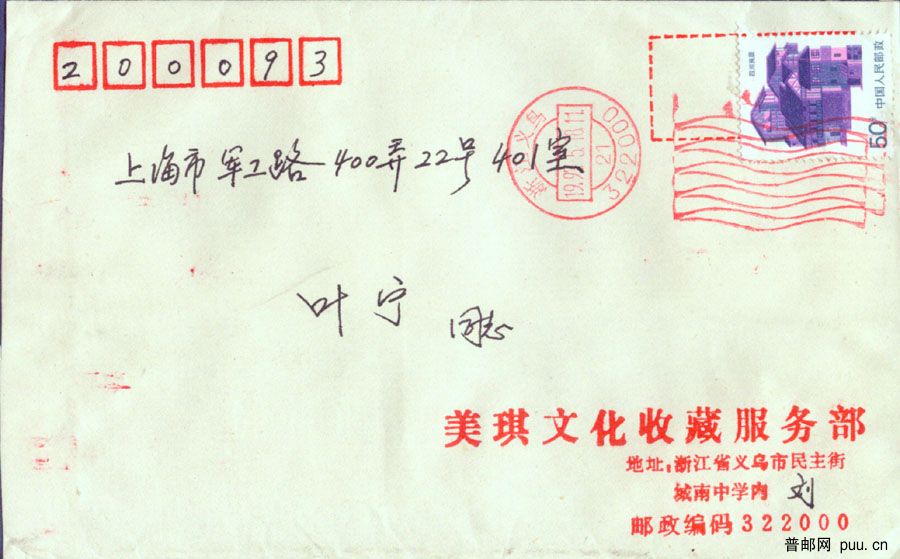 200093
上海市军工路400弄22号401室
叶宁 同志
浙江义乌
322000
21
四川民居
中国人民邮政
50
美琪文化收藏服务部
地址:浙江省义乌市民主街
城南中学内 刘
邮政编码322000
普邮网 puu.cn